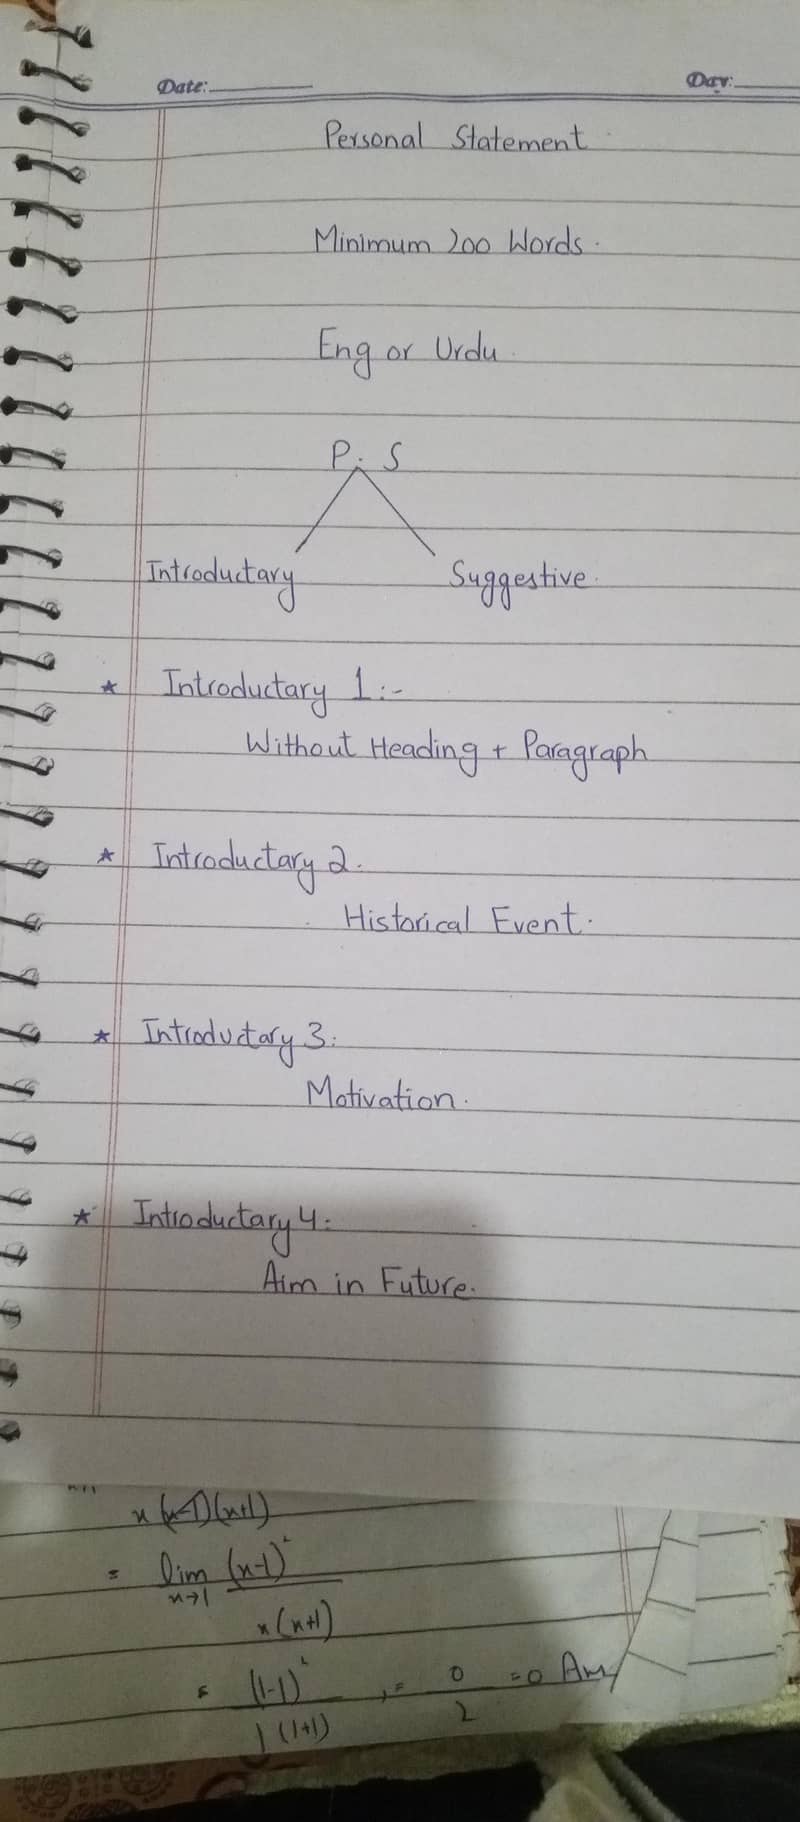 Date:
Day:
Personal Statement
Minimum 200 Words.
Eng or Urdu.
P. S
Introductary
Suggestive.
* Introductary 1:-
Without Heading + Paragraph
* Introductary 2.
Historical Event.
* Introductary 3:
Motivation.
* Introductary 4:
Aim in Future.
x (x-1)(x+1)
= lim (x-1)²
x→1
x(x+1)
= (1-1)² , = 0 = 0 Ans
1 (1+1) 2